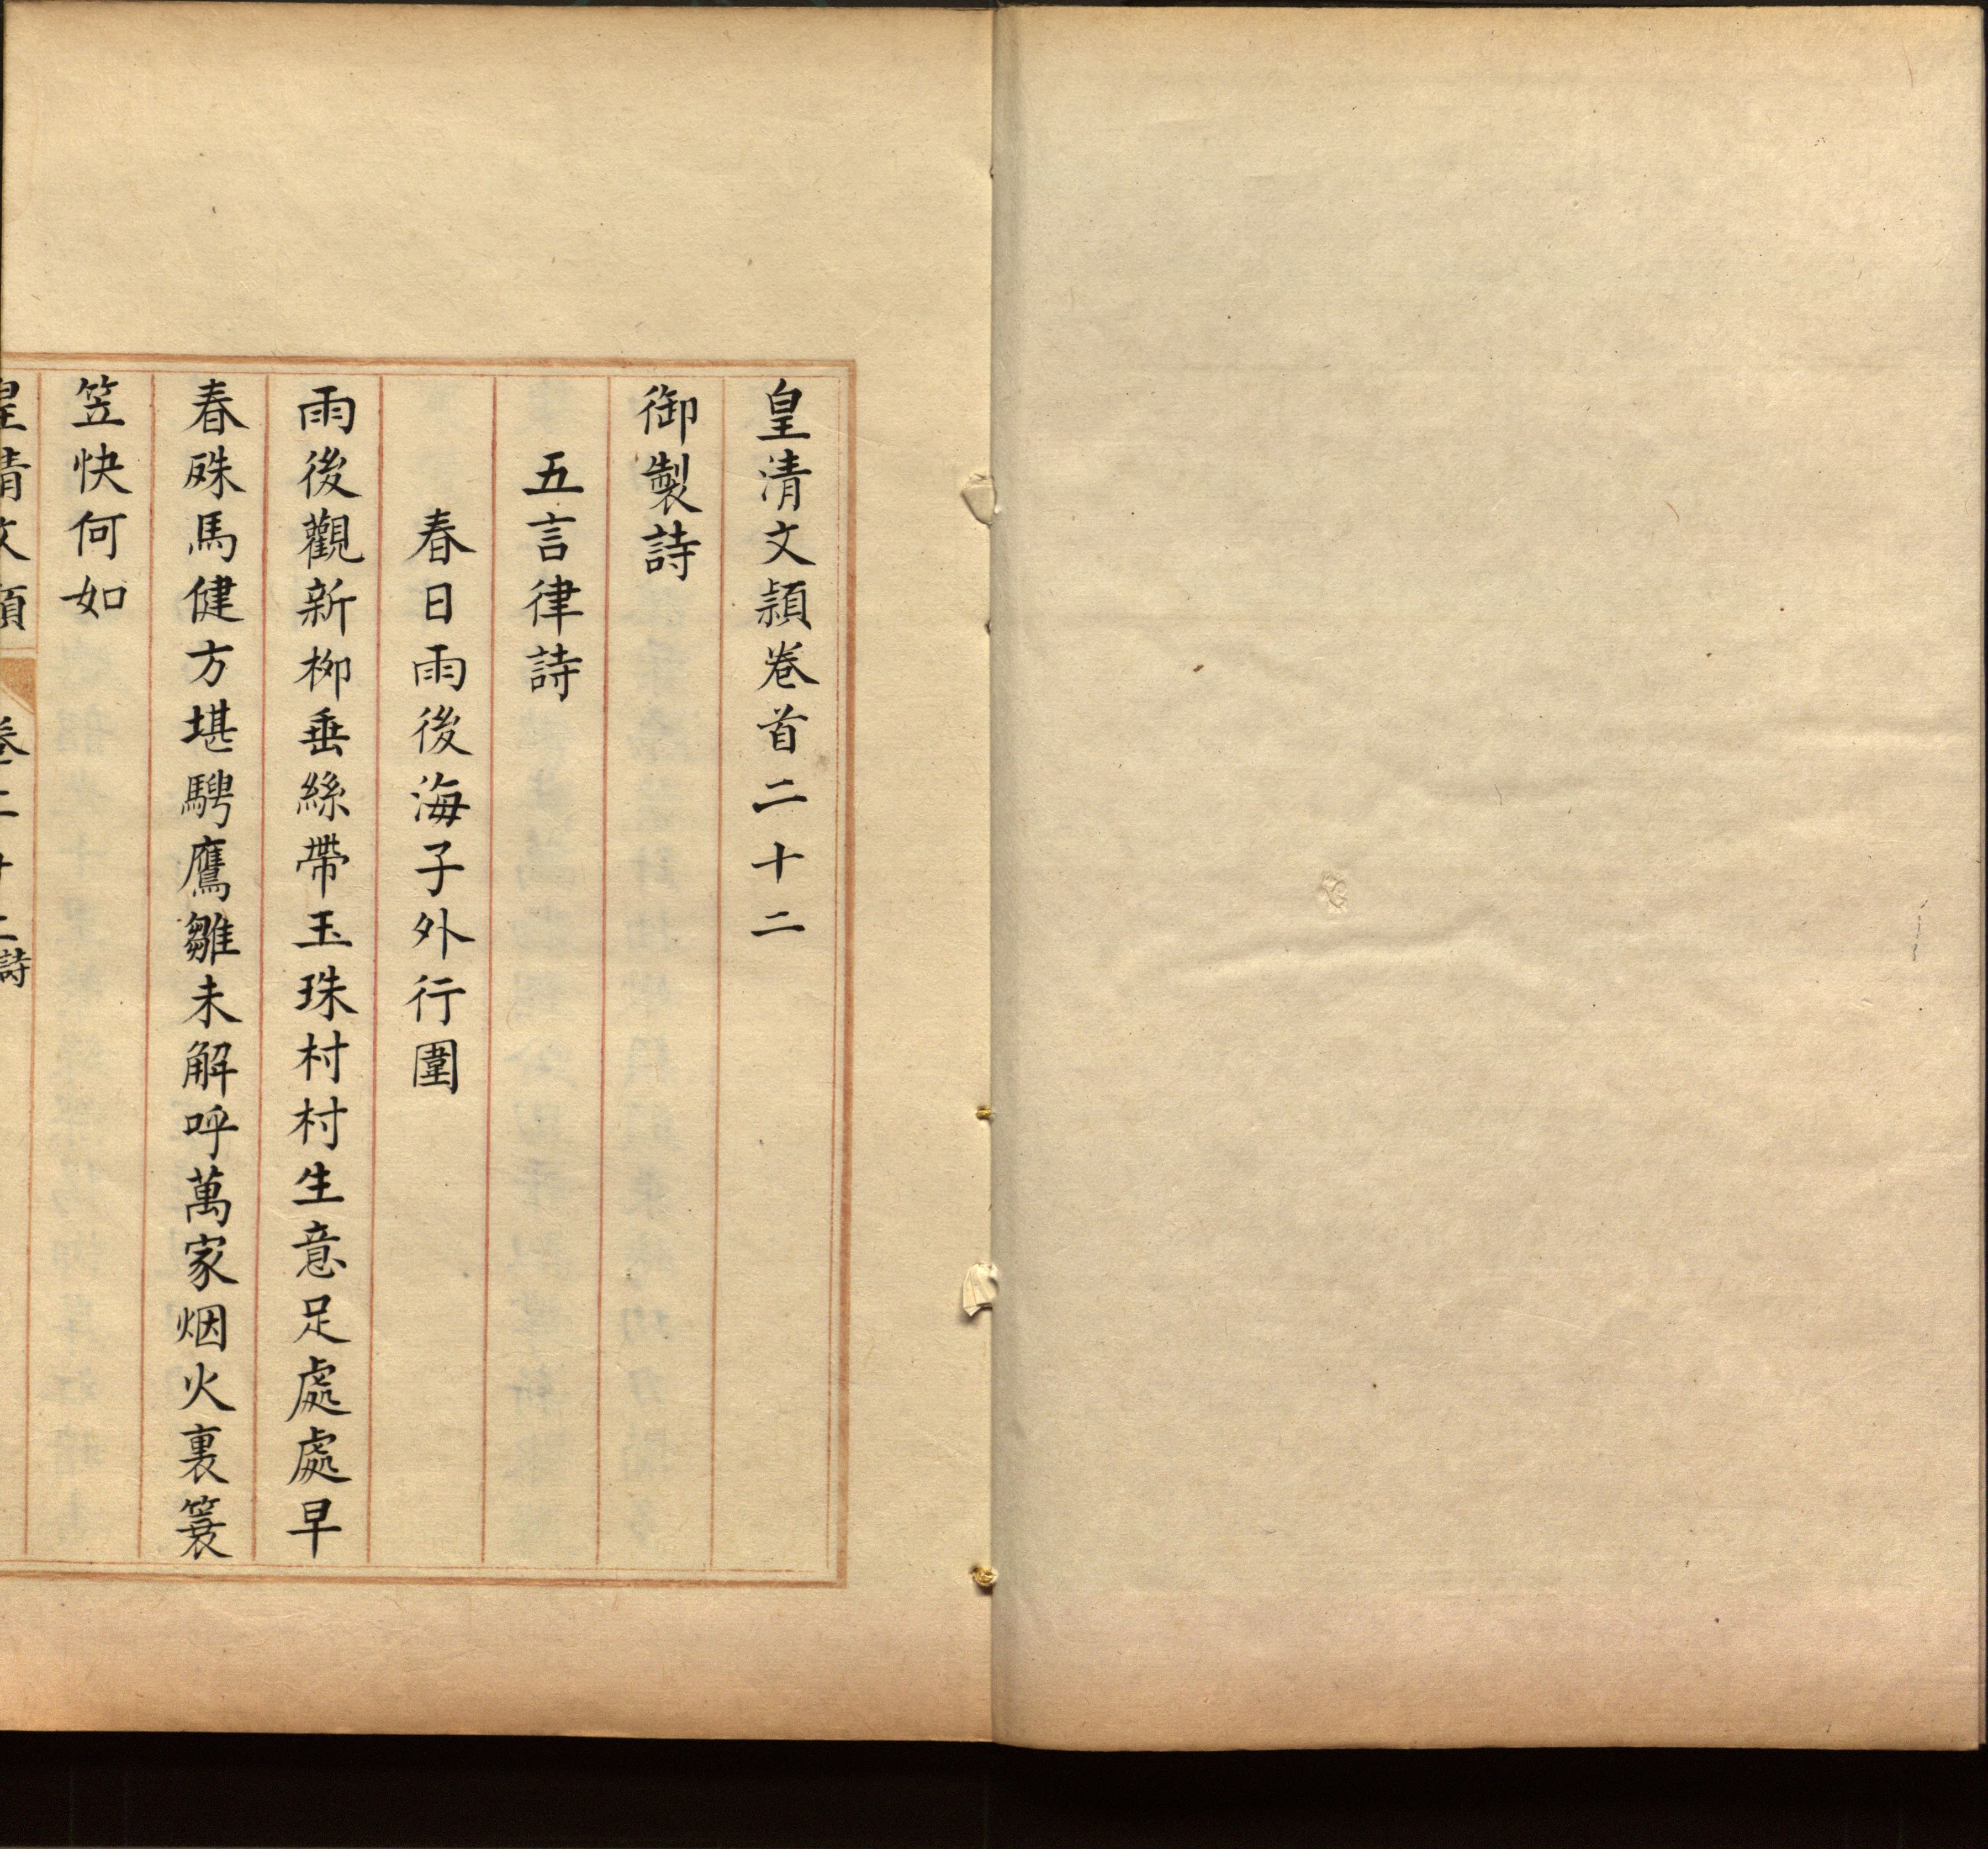 皇清文穎卷首二十二
御製詩
五言律詩
春日雨後海子外行圍
雨後觀新柳垂絲帶玉珠村村生意足處處早
春殊馬健方堪騁鷹雛未解呼萬家烟火裏簑
笠快何如
皇清文穎 卷二十二 詩